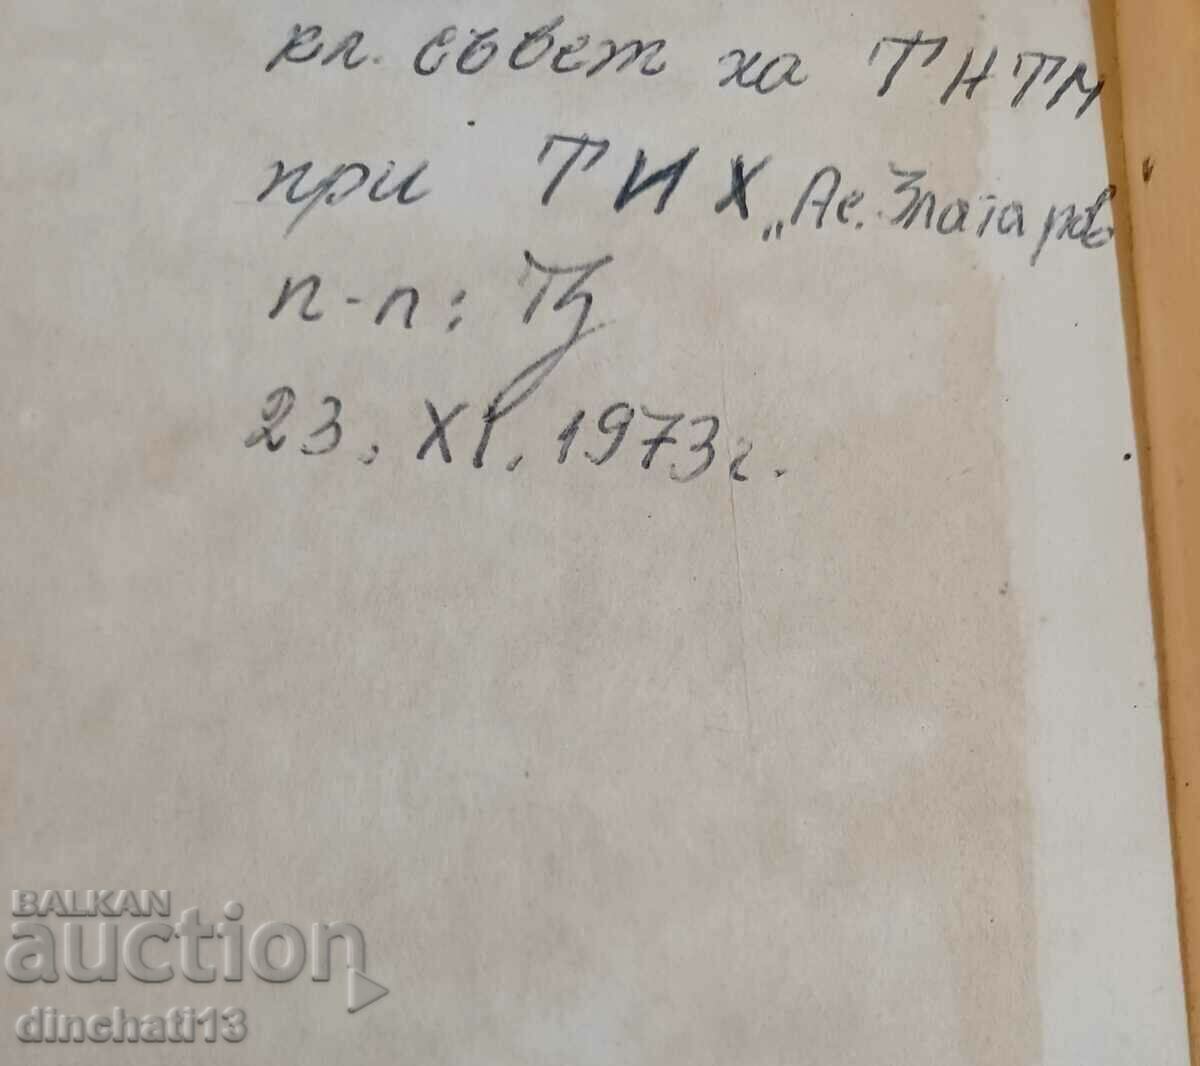 кл. съвет на ТНТМ
при ТИХ „Ас. Златаров
п-п:
23. XI. 1973 г.
BALKAN
auction
dinchati13